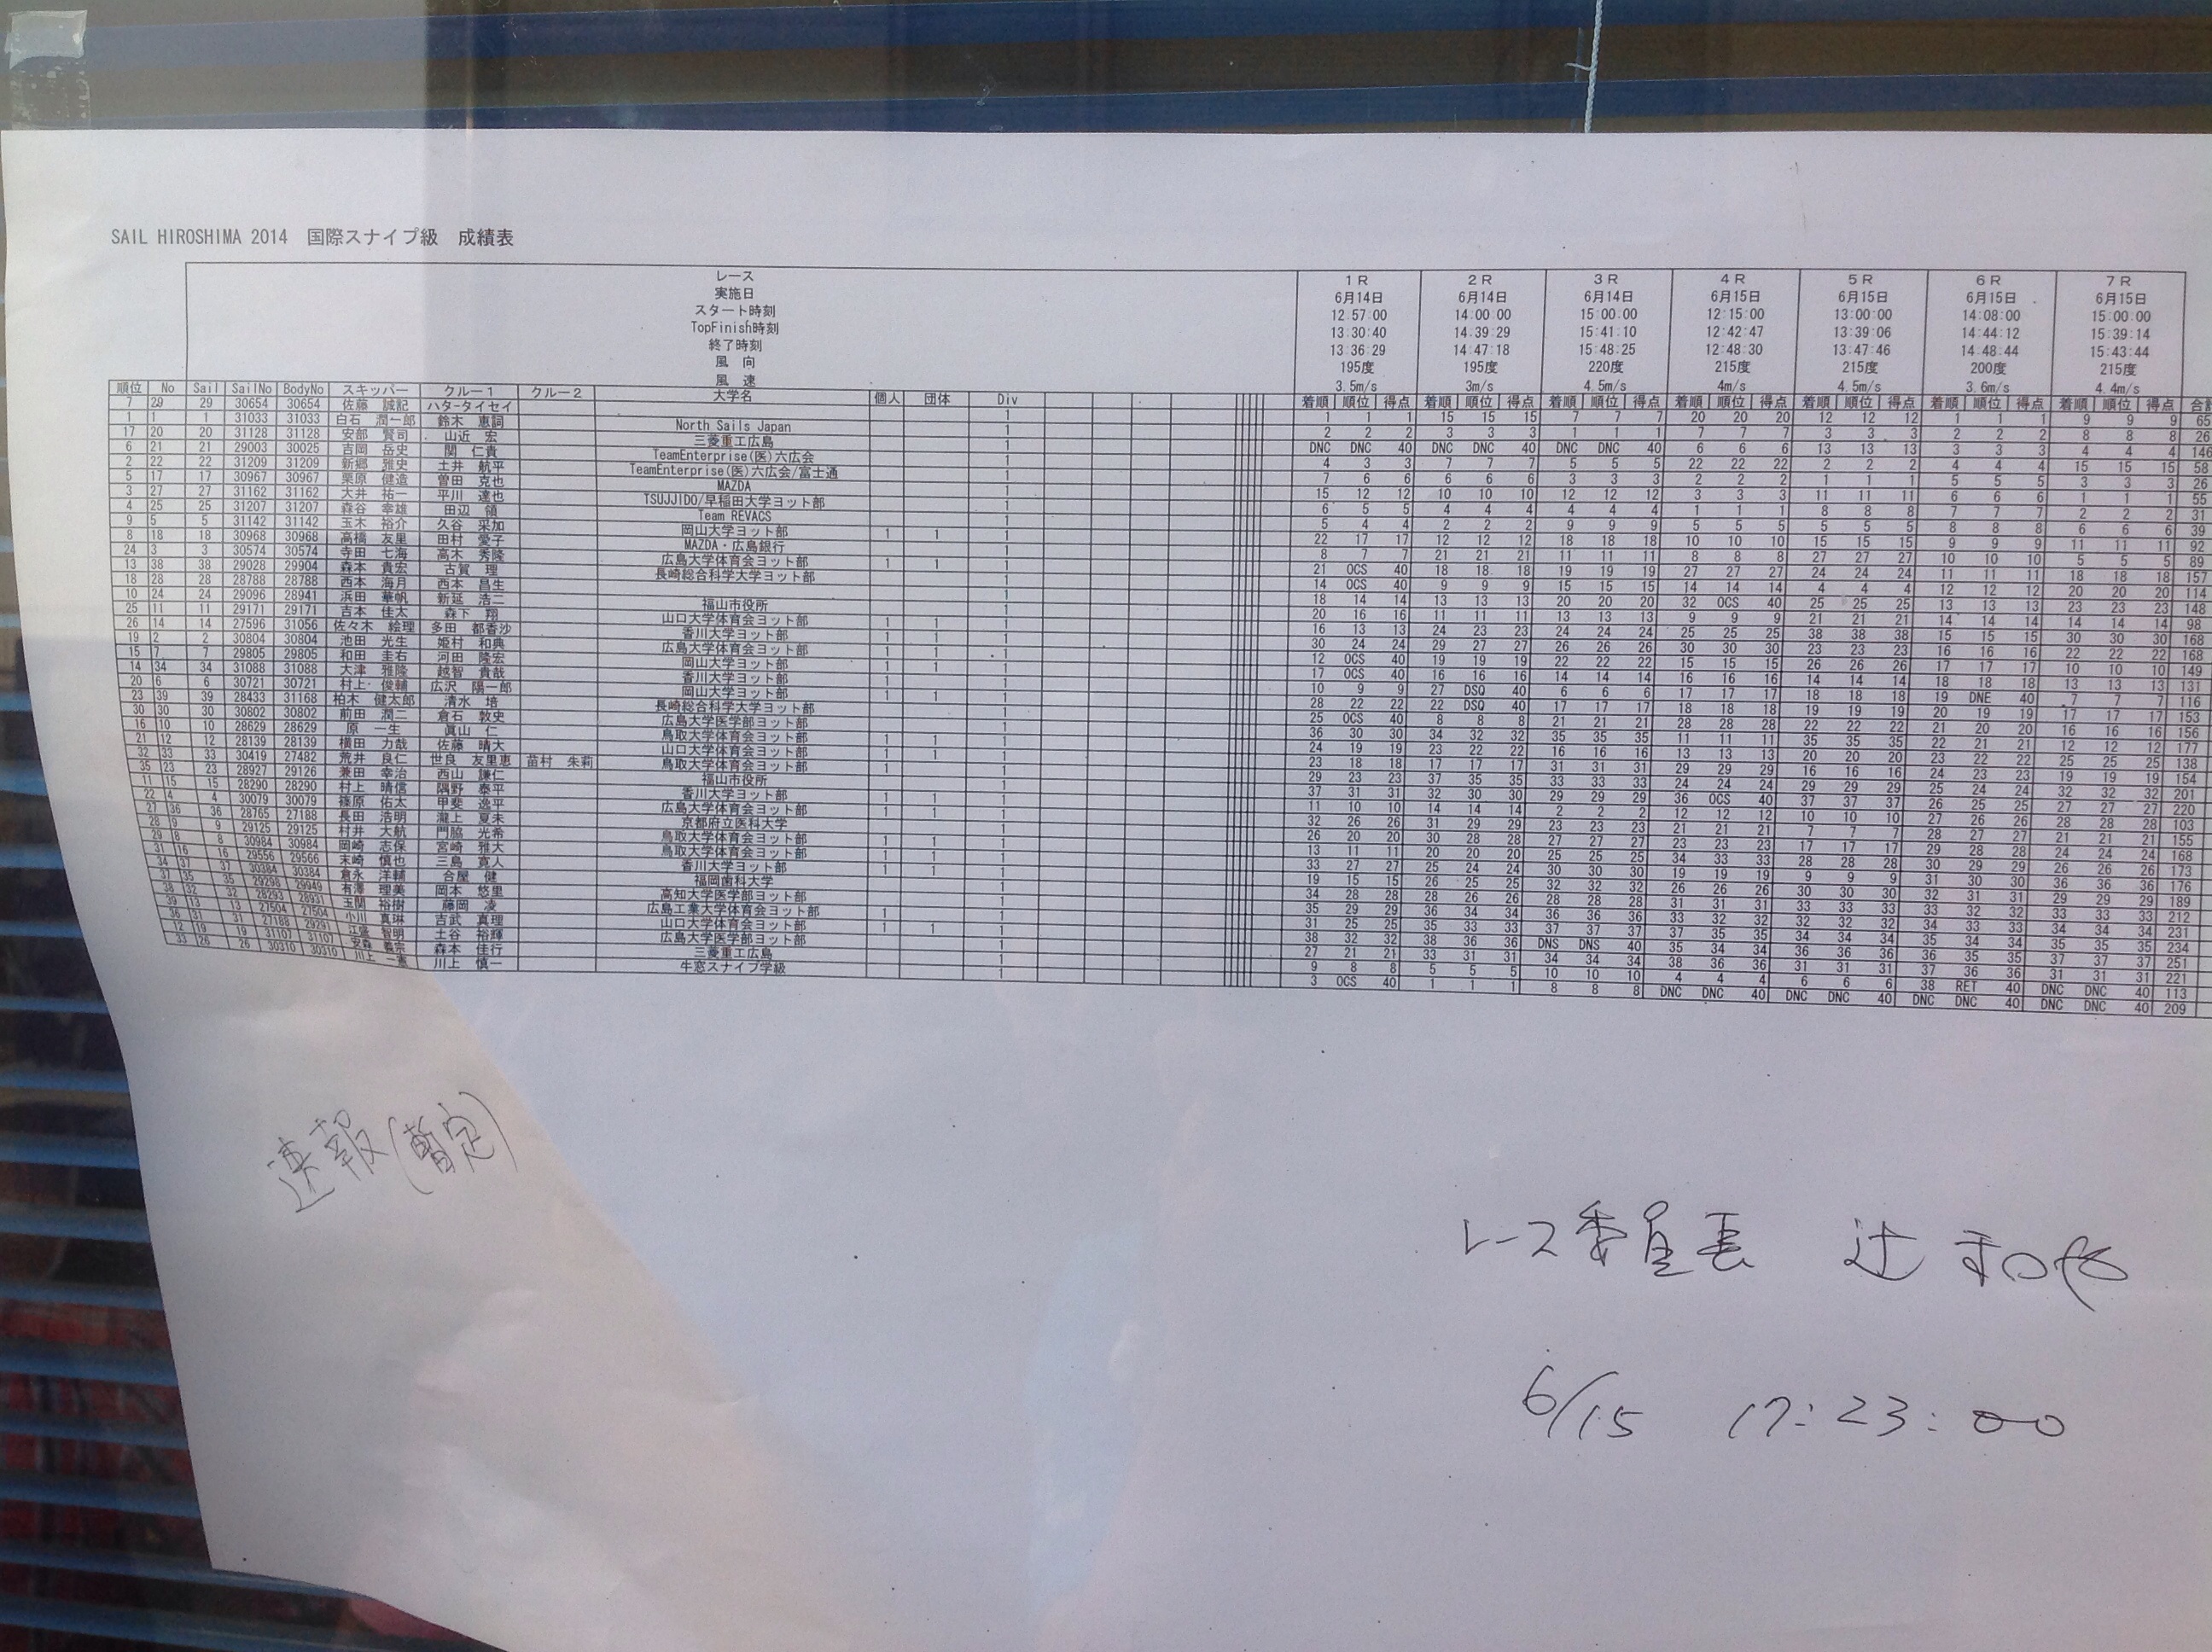 SAIL HIROSHIMA 2014 国際スナイプ級 成績表
レース 1R 2R 3R 4R 5R 6R 7R
実施日 6月14日 6月14日 6月14日 6月15日 6月15日 6月15日 6月15日
スタート時刻 12:57:00 14:00:00 15:00:00 12:15:00 13:00:00 14:08:00 15:00:00
TopFinish時刻 13:30:40 14:39:29 15:41:10 12:42:47 13:39:06 14:44:12 15:39:14
終了時刻 13:36:29 14:47:18 15:48:25 12:48:30 13:47:46 14:48:44 15:43:44
風 向 195度 195度 220度 215度 215度 200度 215度
風 速 3.5m/s 3m/s 4.5m/s 4m/s 4.5m/s 3.6m/s 4.4m/s
順位 No Sail SailNo BodyNo スキッパー クルー1 クルー2 大学名 個人 団体 Div 着順 順位 得点 着順 順位 得点 着順 順位 得点 着順 順位 得点 着順 順位 得点 着順 順位 得点 着順 順位 得点
7 29 29 30654 30654 佐藤 誠記 ハタータイセイ 1 1 1 1 15 15 15 7 7 7 20 20 20 12 12 12 1 1 1 9 9 9 65
1 1 1 31033 31033 白石 潤一郎 鈴木 恵詞 North Sails Japan 1 2 2 2 3 3 3 1 1 1 7 7 7 3 3 3 2 2 2 8 8 8 26
17 20 20 31128 31128 安部 賢司 山近 宏 三菱重工広島 1 DNC DNC 40 DNC DNC 40 DNC DNC 40 6 6 6 13 13 13 3 3 3 4 4 4 146
6 21 21 29003 30025 吉岡 岳史 関 仁貴 TeamEnterprise(医)六広会 1 4 3 3 7 7 7 5 5 5 22 22 22 2 2 2 4 4 4 15 15 15 58
2 22 22 31209 31209 新郷 雅史 土井 航平 TeamEnterprise(医)六広会/富士通 1 7 6 6 6 6 6 3 3 3 2 2 2 1 1 1 5 5 5 3 3 3 26
5 17 17 30967 30967 栗原 健造 曽田 克也 MAZDA 1 15 12 12 10 10 10 12 12 12 3 3 3 11 11 11 6 6 6 1 1 1 55
3 27 27 31162 31162 大井 祐一 平川 達也 TSUJJIDO/早稲田大学ヨット部 1 6 5 5 4 4 4 4 4 4 1 1 1 8 8 8 7 7 7 2 2 2 31
4 25 25 31207 31207 森谷 幸雄 田辺 領 Team REVACS 1 5 4 4 2 2 2 9 9 9 5 5 5 5 5 5 8 8 8 6 6 6 39
9 5 5 31142 31142 玉木 裕介 久谷 采加 岡山大学ヨット部 1 1 1 22 17 17 12 12 12 18 18 18 10 10 10 15 15 15 9 9 9 11 11 11 92
8 18 18 30968 30968 高橋 友里 田村 愛子 MAZDA・広島銀行 1 8 7 7 21 21 21 11 11 11 8 8 8 27 27 27 10 10 10 5 5 5 89
24 3 3 30574 30574 寺田 七海 高木 秀隆 広島大学体育会ヨット部 1 1 1 21 OCS 40 18 18 18 19 19 19 27 27 27 24 24 24 11 11 11 18 18 18 157
13 38 38 29028 29904 森本 貴宏 古賀 理 長崎総合科学大学ヨット部 1 14 OCS 40 9 9 9 15 15 15 14 14 14 4 4 4 12 12 12 20 20 20 114
18 28 28 28788 28788 西本 海月 西本 昌生 1 18 14 14 13 13 13 20 20 20 32 OCS 40 25 25 25 13 13 13 23 23 23 148
10 24 24 29096 28941 浜田 華帆 新延 浩二 福山市役所 1 20 16 16 11 11 11 13 13 13 9 9 9 21 21 21 14 14 14 14 14 14 98
25 11 11 29171 29171 吉本 佳太 森下 翔 山口大学体育会ヨット部 1 1 1 16 13 13 24 23 23 24 24 24 25 25 25 38 38 38 15 15 15 30 30 30 168
26 14 14 27596 31056 佐々木 絵理 多田 都香沙 香川大学ヨット部 1 1 1 30 24 24 29 27 27 26 26 26 30 30 30 23 23 23 16 16 16 22 22 22 168
19 2 2 30804 30804 池田 光生 姫村 和典 広島大学体育会ヨット部 1 1 1 12 OCS 40 19 19 19 22 22 22 15 15 15 26 26 26 17 17 17 10 10 10 149
15 7 7 29805 29805 和田 圭右 河田 隆宏 岡山大学ヨット部 1 1 1 17 OCS 40 16 16 16 14 14 14 16 16 16 14 14 14 18 18 18 13 13 13 131
14 34 34 31088 31088 大津 雅隆 越智 貴哉 香川大学ヨット部 1 1 1 10 9 9 27 DSQ 40 6 6 6 17 17 17 18 18 18 19 DNE 40 7 7 7 116
20 6 6 30721 30721 村上 俊輔 広沢 陽一郎 岡山大学ヨット部 1 1 1 28 22 22 22 DSQ 40 17 17 17 18 18 18 19 19 19 20 19 19 17 17 17 153
23 39 39 28433 31168 柏木 健太郎 清水 培 長崎総合科学大学ヨット部 1 25 OCS 40 8 8 8 21 21 21 28 28 28 22 22 22 21 20 20 16 16 16 156
30 30 30 30802 30802 前田 潤二 倉石 敦史 広島大学医学部ヨット部 1 36 30 30 34 32 32 35 35 35 11 11 11 35 35 35 22 21 21 12 12 12 177
16 10 10 28629 28629 原 一生 眞山 仁 鳥取大学体育会ヨット部 1 1 1 24 19 19 23 22 22 16 16 16 13 13 13 20 20 20 23 22 22 25 25 25 138
21 12 12 28139 28139 横田 力哉 佐藤 晴大 山口大学体育会ヨット部 1 1 1 23 18 18 17 17 17 31 31 31 29 29 29 16 16 16 24 23 23 19 19 19 154
32 33 33 30419 27482 荒井 良仁 世良 友里恵 苗村 朱莉 鳥取大学体育会ヨット部 1 1 29 23 23 37 35 35 33 33 33 24 24 24 29 29 29 25 24 24 32 32 32 201
35 23 23 28927 29126 兼田 幸治 西山 謙仁 福山市役所 1 37 31 31 32 30 30 29 29 29 36 OCS 40 37 37 37 26 25 25 27 27 27 220
11 15 15 28290 28290 村上 晴信 隅野 泰平 香川大学ヨット部 1 1 1 11 10 10 14 14 14 2 2 2 12 12 12 10 10 10 27 26 26 28 28 28 103
22 4 4 30079 30079 篠原 佑太 甲斐 逸平 広島大学体育会ヨット部 1 1 1 32 26 26 31 29 29 23 23 23 21 21 21 7 7 7 28 27 27 21 21 21 155
27 36 36 28765 27188 長田 浩明 瀧上 夏未 京都府立医科大学 1 26 20 20 30 28 28 27 27 27 23 23 23 17 17 17 29 28 28 24 24 24 168
28 9 9 29125 29125 村井 大航 門脇 光希 鳥取大学体育会ヨット部 1 1 1 13 11 11 20 20 20 25 25 25 34 33 33 28 28 28 30 29 29 26 26 26 173
29 8 8 30984 30984 岡崎 志保 宮崎 雅大 鳥取大学体育会ヨット部 1 1 1 33 27 27 25 24 24 30 30 30 19 19 19 9 9 9 31 30 30 36 36 36 176
31 16 16 29556 29566 末崎 慎也 三島 寛人 香川大学ヨット部 1 1 1 19 15 15 26 25 25 32 32 32 26 26 26 30 30 30 32 31 31 29 29 29 189
34 37 37 30384 30384 倉永 洋輔 合屋 健 福岡歯科大学 1 34 28 28 28 26 26 28 28 28 31 31 31 33 33 33 33 32 32 33 33 33 212
37 35 35 29298 29949 有澤 理美 岡本 悠里 高知大学医学部ヨット部 1 35 29 29 36 34 34 36 36 36 33 32 32 32 32 32 34 33 33 34 34 34 231
38 32 32 28293 28931 玉関 裕樹 藤岡 凌 広島工業大学体育会ヨット部 1 1 31 25 25 35 33 33 37 37 37 37 35 35 34 34 34 35 34 34 35 35 35 234
39 13 13 27504 27504 小川 真琳 吉武 真理 山口大学体育会ヨット部 1 1 1 38 32 32 38 36 36 DNS DNS 40 35 34 34 36 36 36 36 35 35 37 37 37 251
36 31 31 27188 29291 江盛 智明 土谷 裕輝 広島大学医学部ヨット部 1 27 21 21 33 31 31 34 34 34 38 36 36 31 31 31 37 36 36 31 31 31 221
12 19 19 31107 31107 安森 義宗 森本 佳行 三菱重工広島 1 9 8 8 5 5 5 10 10 10 4 4 4 6 6 6 38 RET 40 DNC DNC 40 113
33 26 26 30310 30310 川上 一憲 川上 慎一 牛窓スナイプ学級 1 3 OCS 40 1 1 1 8 8 8 DNC DNC 40 DNC DNC 40 DNC DNC 40 DNC DNC 40 209
速報(暫定)
レース委員長 辻
6/15 17:23:00